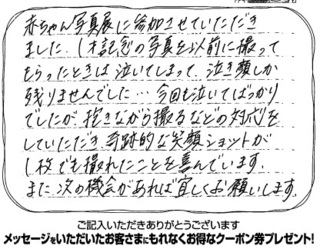 赤ちゃん写真展に参加させていただき
ました。1才記念の写真を以前に撮って
もらったときは泣いてしまって、泣き顔しか
残りませんでした…今回も泣いてばっかり
でしたが、抱きながら撮るなどの対応を
していただき奇跡的な笑顔ショットが
1枚でも撮れたことを喜んでいます。
また次の機会があれば宜しくお願いします。
ご記入いただきありがとうございます
メッセージをいただいたお客さまにもれなくお得なクーポン券プレゼント!